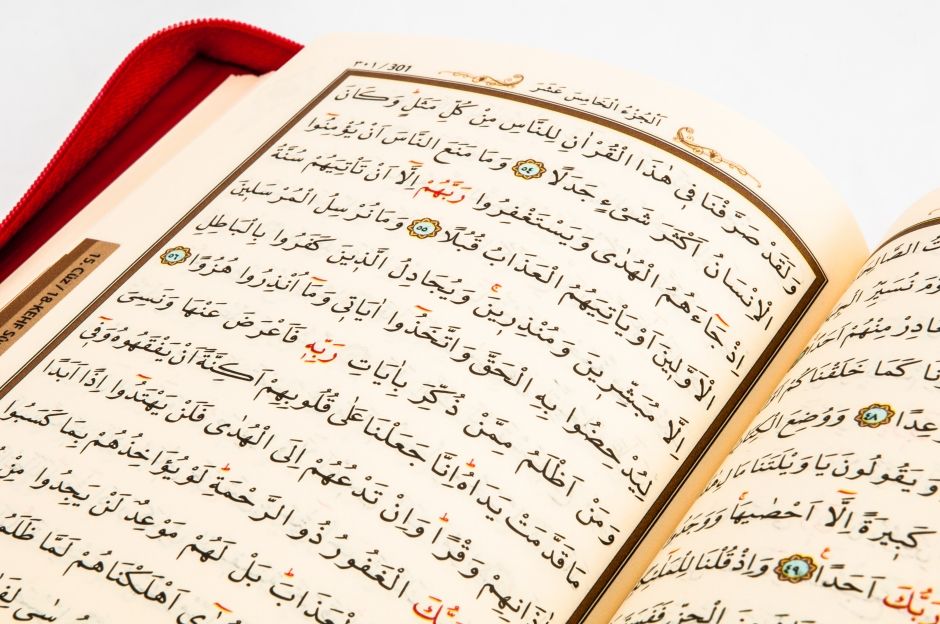 ٣٠١/301
اَلْجُزْءُ الْخَامِسَ عَشَرَ
وَلَقَدْ صَرَّفْنَا فِى هٰذَا الْقُرْاٰنِ لِلنَّاسِ مِنْ كُلِّ مَثَلٍ وَكَانَ
الْاِنْسَانُ اَكْثَرَ شَىْءٍ جَدَلًا ٥٤ وَمَا مَنَعَ النَّاسَ اَنْ يُؤْمِنُوا
اِذْ جَٓاءَهُمُ الْهُدٰى وَيَسْتَغْفِرُوا رَبَّهُمْ اِلَّٓا اَنْ تَاْتِيَهُمْ سُنَّةُ
الْاَوَّلٖينَ اَوْ يَاْتِيَهُمُ الْعَذَابُ قُبُلًا ٥٥ وَمَا نُرْسِلُ الْمُرْسَلٖينَ
اِلَّا مُبَشِّرٖينَ وَمُنْذِرٖينَ وَيُجَادِلُ الَّذٖينَ كَفَرُوا بِالْبَاطِلِ
لِيُدْحِضُوا بِهِ الْحَقَّ وَاتَّخَذُٓوا اٰيَاتٖى وَمَٓا اُنْذِرُوا هُزُوًا ٥٦
وَمَنْ اَظْلَمُ مِمَّنْ ذُكِّرَ بِاٰيَاتِ رَبِّهٖ فَاَعْرَضَ عَنْهَا وَنَسِىَ
مَا قَدَّمَتْ يَدَاهُ اِنَّا جَعَلْنَا عَلٰى قُلُوبِهِمْ اَكِنَّةً اَنْ يَفْقَهُوهُ وَفٖٓى
اٰذَانِهِمْ وَقْرًا وَاِنْ تَدْعُهُمْ اِلَى الْهُدٰى فَلَنْ يَهْتَدُٓوا اِذًا اَبَدًا
الْغَفُورُ ذُو الرَّحْمَةِ لَوْ يُؤَاخِذُهُمْ بِمَا كَسَبُوا
الْعَذَابَ بَلْ لَهُمْ مَوْعِدٌ لَنْ يَجِدُوا مِنْ
اَهْلَكْنَاهُمْ لَمَّا
15. CÜZ / 18-KEHF
نُسَيِّرُ
مِنْهُمْ
كَمَا خَلَقْنَاكُمْ
٤٨ وَوُضِعَ
وَيَقُولُونَ يَا وَيْلَتَنَا
كَبٖيرَةً اِلَّٓا اَحْصٰيهَا
رَبُّكَ اَحَدًا ٤٩ وَاِذْ قُلْنَا